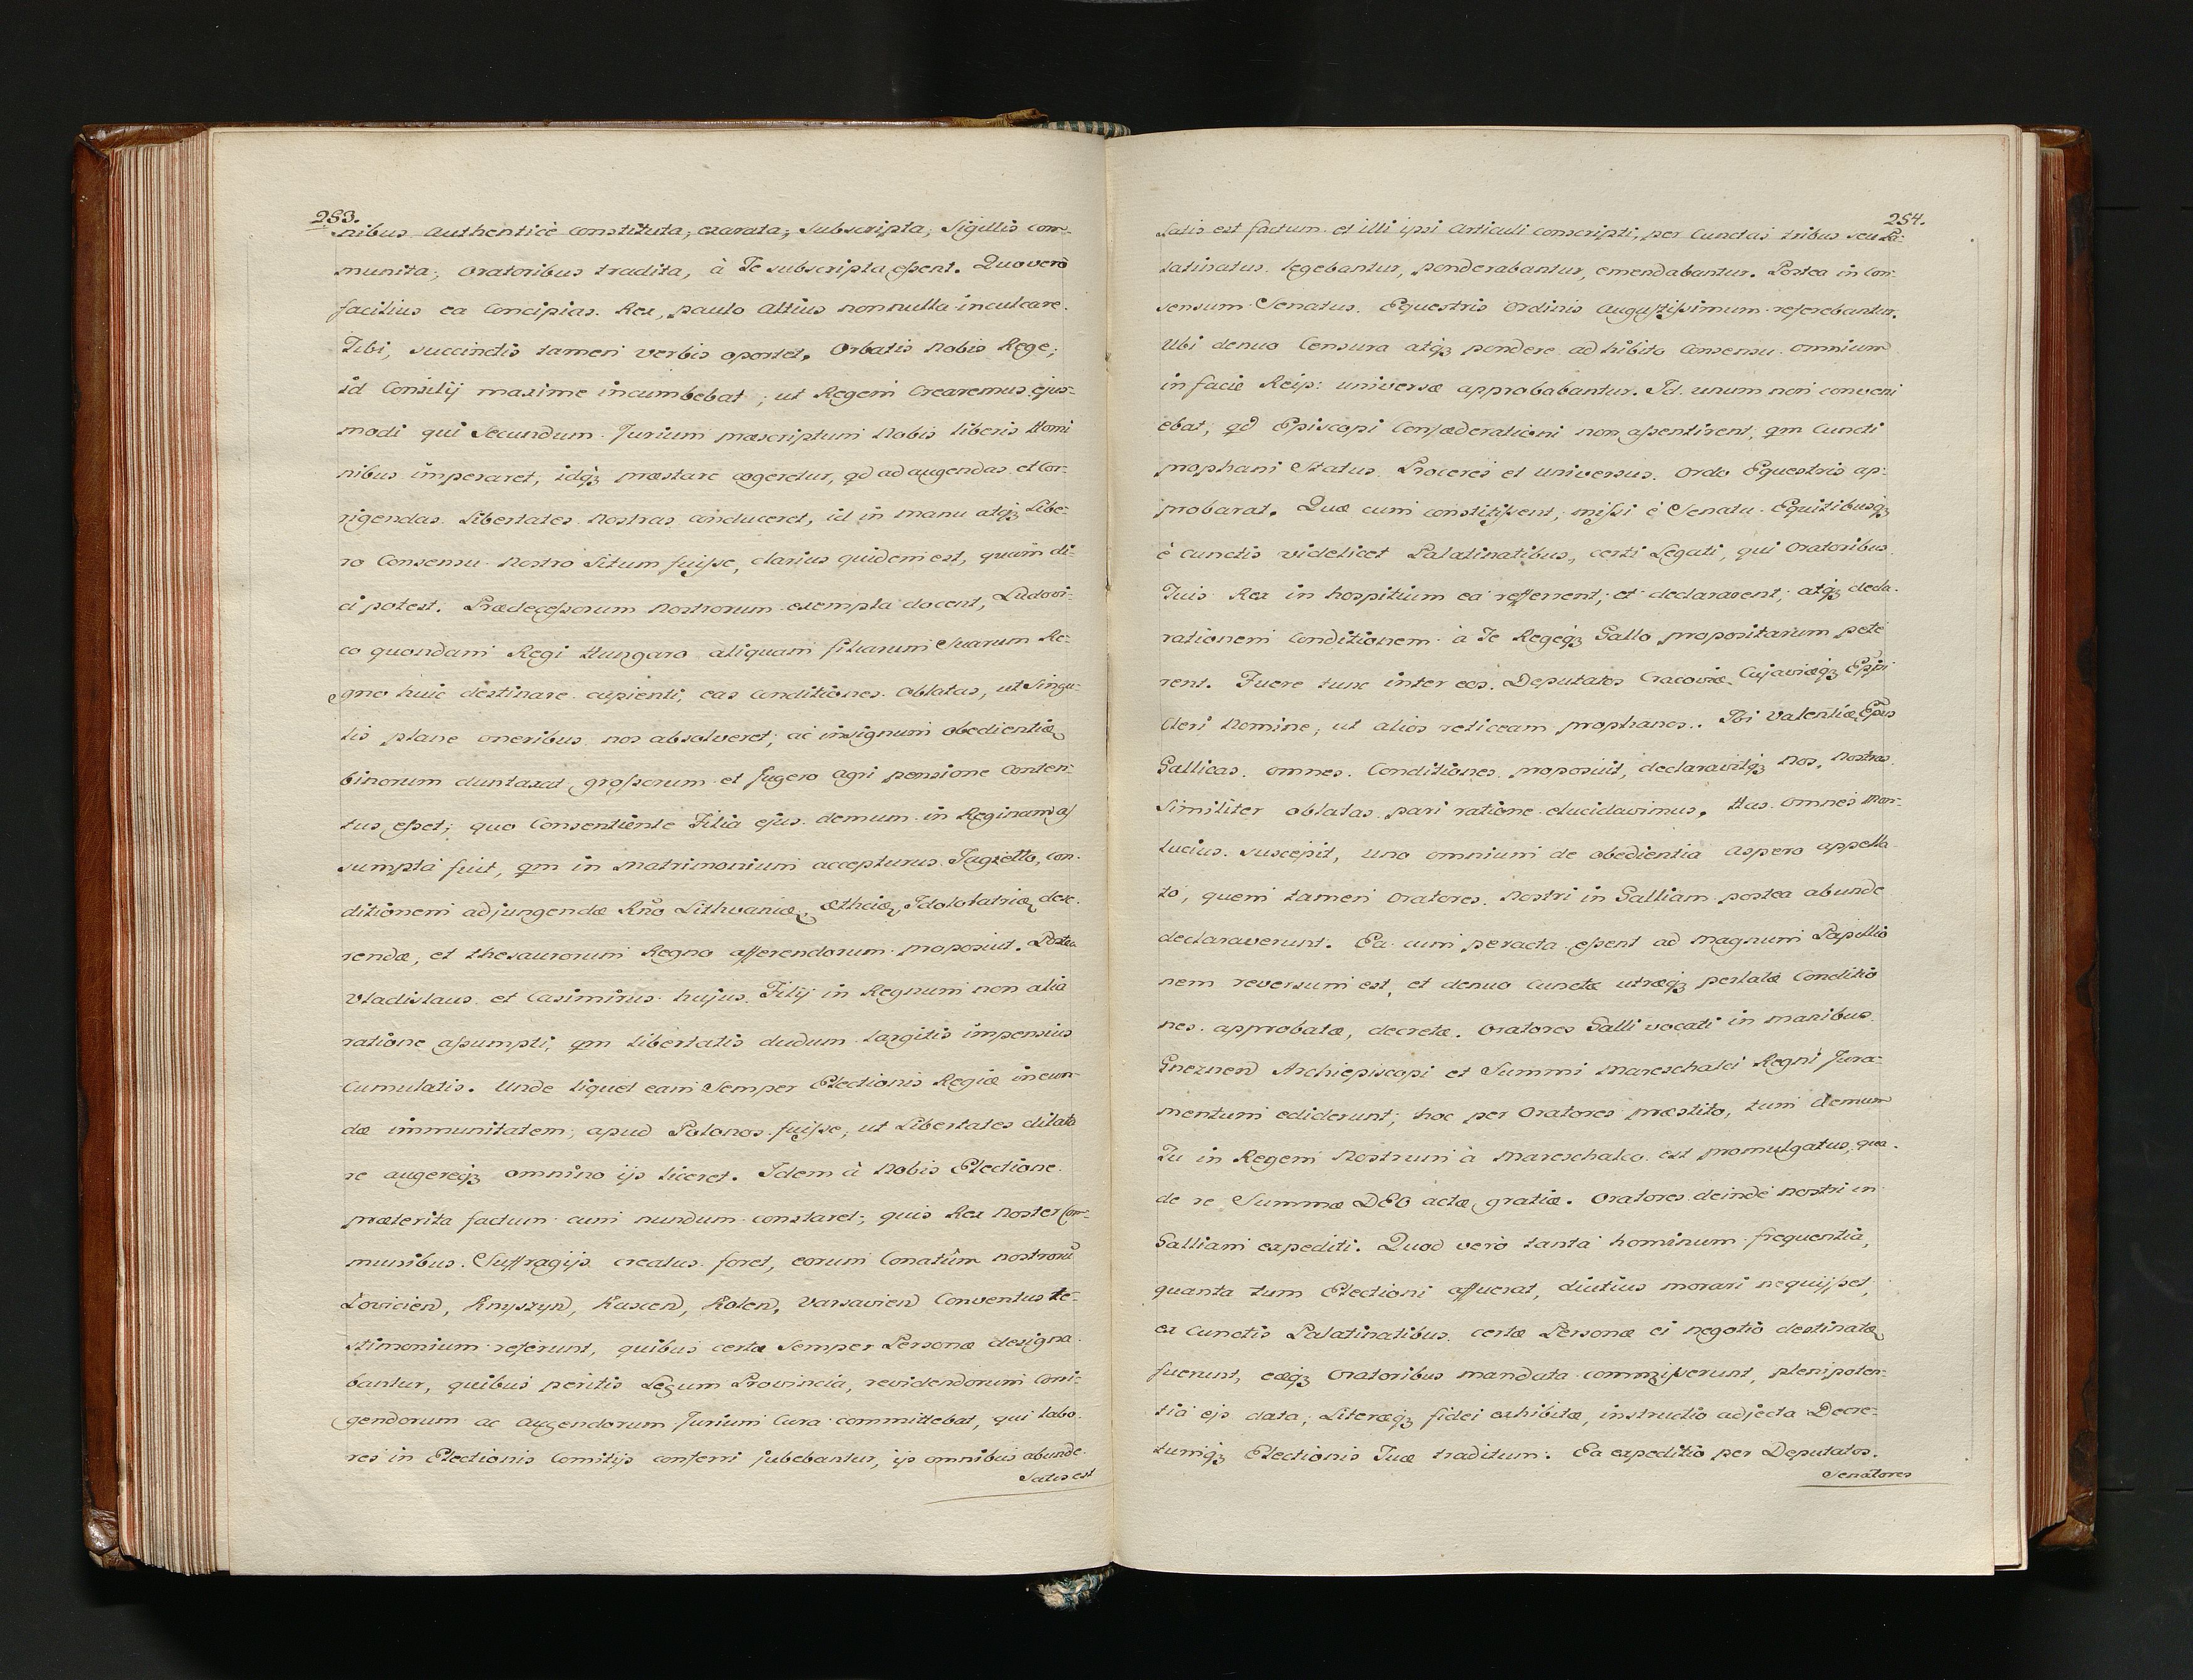 253.
nibus authenticè constituta, exarata, subscripta, Sigillis com-
munita, Oratoribus tradita, à Te subscripta eßent. Quo verò
facilius ea Concipias Rex, paulo altius nonnulla inculcare
Tibi, succinctis tamen verbis oportet. Orbatis Nobis Rege,
id Consilij maxime incumbebat; ut Regem Crearemus ejus-
modi qui Secundum Jurium præscriptum Nobis liberis Homi
nibus imperaret, idq3 præstare cogeretur, qd ad augendas et Cor-
rigendas Libertates Nostras conduceret, id in manu atq3 Libe-
ro Consensu Nostro Situm fuiße, clarius quidem est, quàm di-
ci potest. Prædeceßorum Nostrorum exempla docent, Ludovi-
co quondam Regi Hungaro aliquam filiarum Suarum Re-
gno huic destinare cupienti, eas conditiones oblatas, ut Singu-
lis plane oneribus nos absolveret, ac in signum obedientiæ
binorum duntaxat großorum et Jugero agri pensione Conten-
tus eßet; quo Consentiente Filia ejus demum in Reginam aß
sumpta fuit, qm in Matrimonium accepturus Jagiello, con-
ditionem adjungendæ Rño Lithvaniæ, Æthciæ, Idololatriæ dese-
rendæ, et thesaurorum Regno afferendorum proposuit. Postea
Vladislaus et Casimirus hujus Filij in Regnum non alia
ratione aßumpti, qm libertatis dudum largitis impensius
Cumulatis. Unde liquet eam Semper Electionis Regiæ ineun-
dæ immunitatem, apud Polonos fuiße, ut Libertates dilata
re augereq3 omnino ijs liceret. Idem à Nobis Electione
præterita factum cum nundum constaret, quis Rex Noster Com-
munibus Suffragijs creatus foret, eorum Conatûm nostrorũ
Lovicien, Knyszyn, Kascen, Kolen, Varsavien Conventus te-
stimonium referunt, quibus certæ Semper Personæ designa-
bantur, quibus peritis Legum Provincia, revidendorum Corri-
gendorum ac augendorum Jurium Cura committebat, qui labo-
res in Electionis Comitijs conferri jubebantur, ijs omnibus abunde
Satis est
254.
Satis est factum et illi ipsi Articuli conscripti, per Cunctas tribus seu Pa-
latinatus legebantur, ponderabantur, emendabantur. Postea in Con-
sensum Senatus Equestris Ordinis Augustißimum referebantur.
Ubi denuo Censura atq3 pondere adhibito Consensu omnium
in facie Reip: universæ approbabantur. Id unum non conveni
ebat, qd Episcopi Confæderationi non aßentirent, qm Cuncti
prophani Status Proceres et Universus Ordo Equestris ap-
probarat. Quæ cum constitißent, mißi è Senatu Equitibusq3
è cunctis videlicet Palatinatibus, certi Legati, qui Oratoribus
Tuis Rex in hospitium ea referrent, et declararent, atq3 decla-
rationem Conditionem à Te Regeq3 Gallo propositarum pete
rent. Fuere tunc inter eos Deputatos Cracoviæ Cujaviæq3 Eppi
Cleri Nomine, ut alios reticeam prophanos. Ibi Valentiæ Epus
Gallicas omnes Conditiones proposuit, declaravitq3 Nos, Nostras
Similiter oblatas pari ratione elucidavimus. Has omnes Mon-
lucius suscepit, uno omnium de obedientia aspero appella
to, quem tamen Oratores Nostri in Galliam postea abunde
declaraverunt. Ea cum peracta eßent ad Magnum Papillio
nem reversum est, et denuo Cunctæ utræq3 perlatæ Conditio
nes approbatæ, decretæ. Oratores Galli vocati in manibus
Gneznen Archiepiscopi et Summi Mareschalci Regni Jura-
mentum ediderunt, hoc per Oratores præstito, tum demum
Tu in Regem Nostrum à Mareschalco est promulgatus, qua-
de re Summæ DEO actæ gratiæ. Oratores deinde nostri in
Galliam expediti. Quod verò tanta hominum frequentia,
quanta tum Electioni affuerat, diutius morari nequijßet,
ex Cunctis Palatinatibus certæ Personæ ei negotio destinatæ
fuerunt, eæq3 Oratoribus mandata commißerunt, plenipoten-
tia ejs data, Literæq3 fidei exhibitæ, instructio adjecta Decre-
tumq3 Electionis Tuæ traditum. Ea expeditio per Deputatos
Senatores